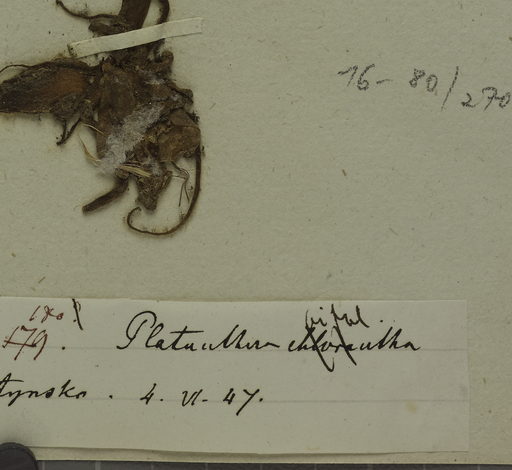 16-80/270
180
179. Platanthera chlorantha bifol.
4. VI. 47.